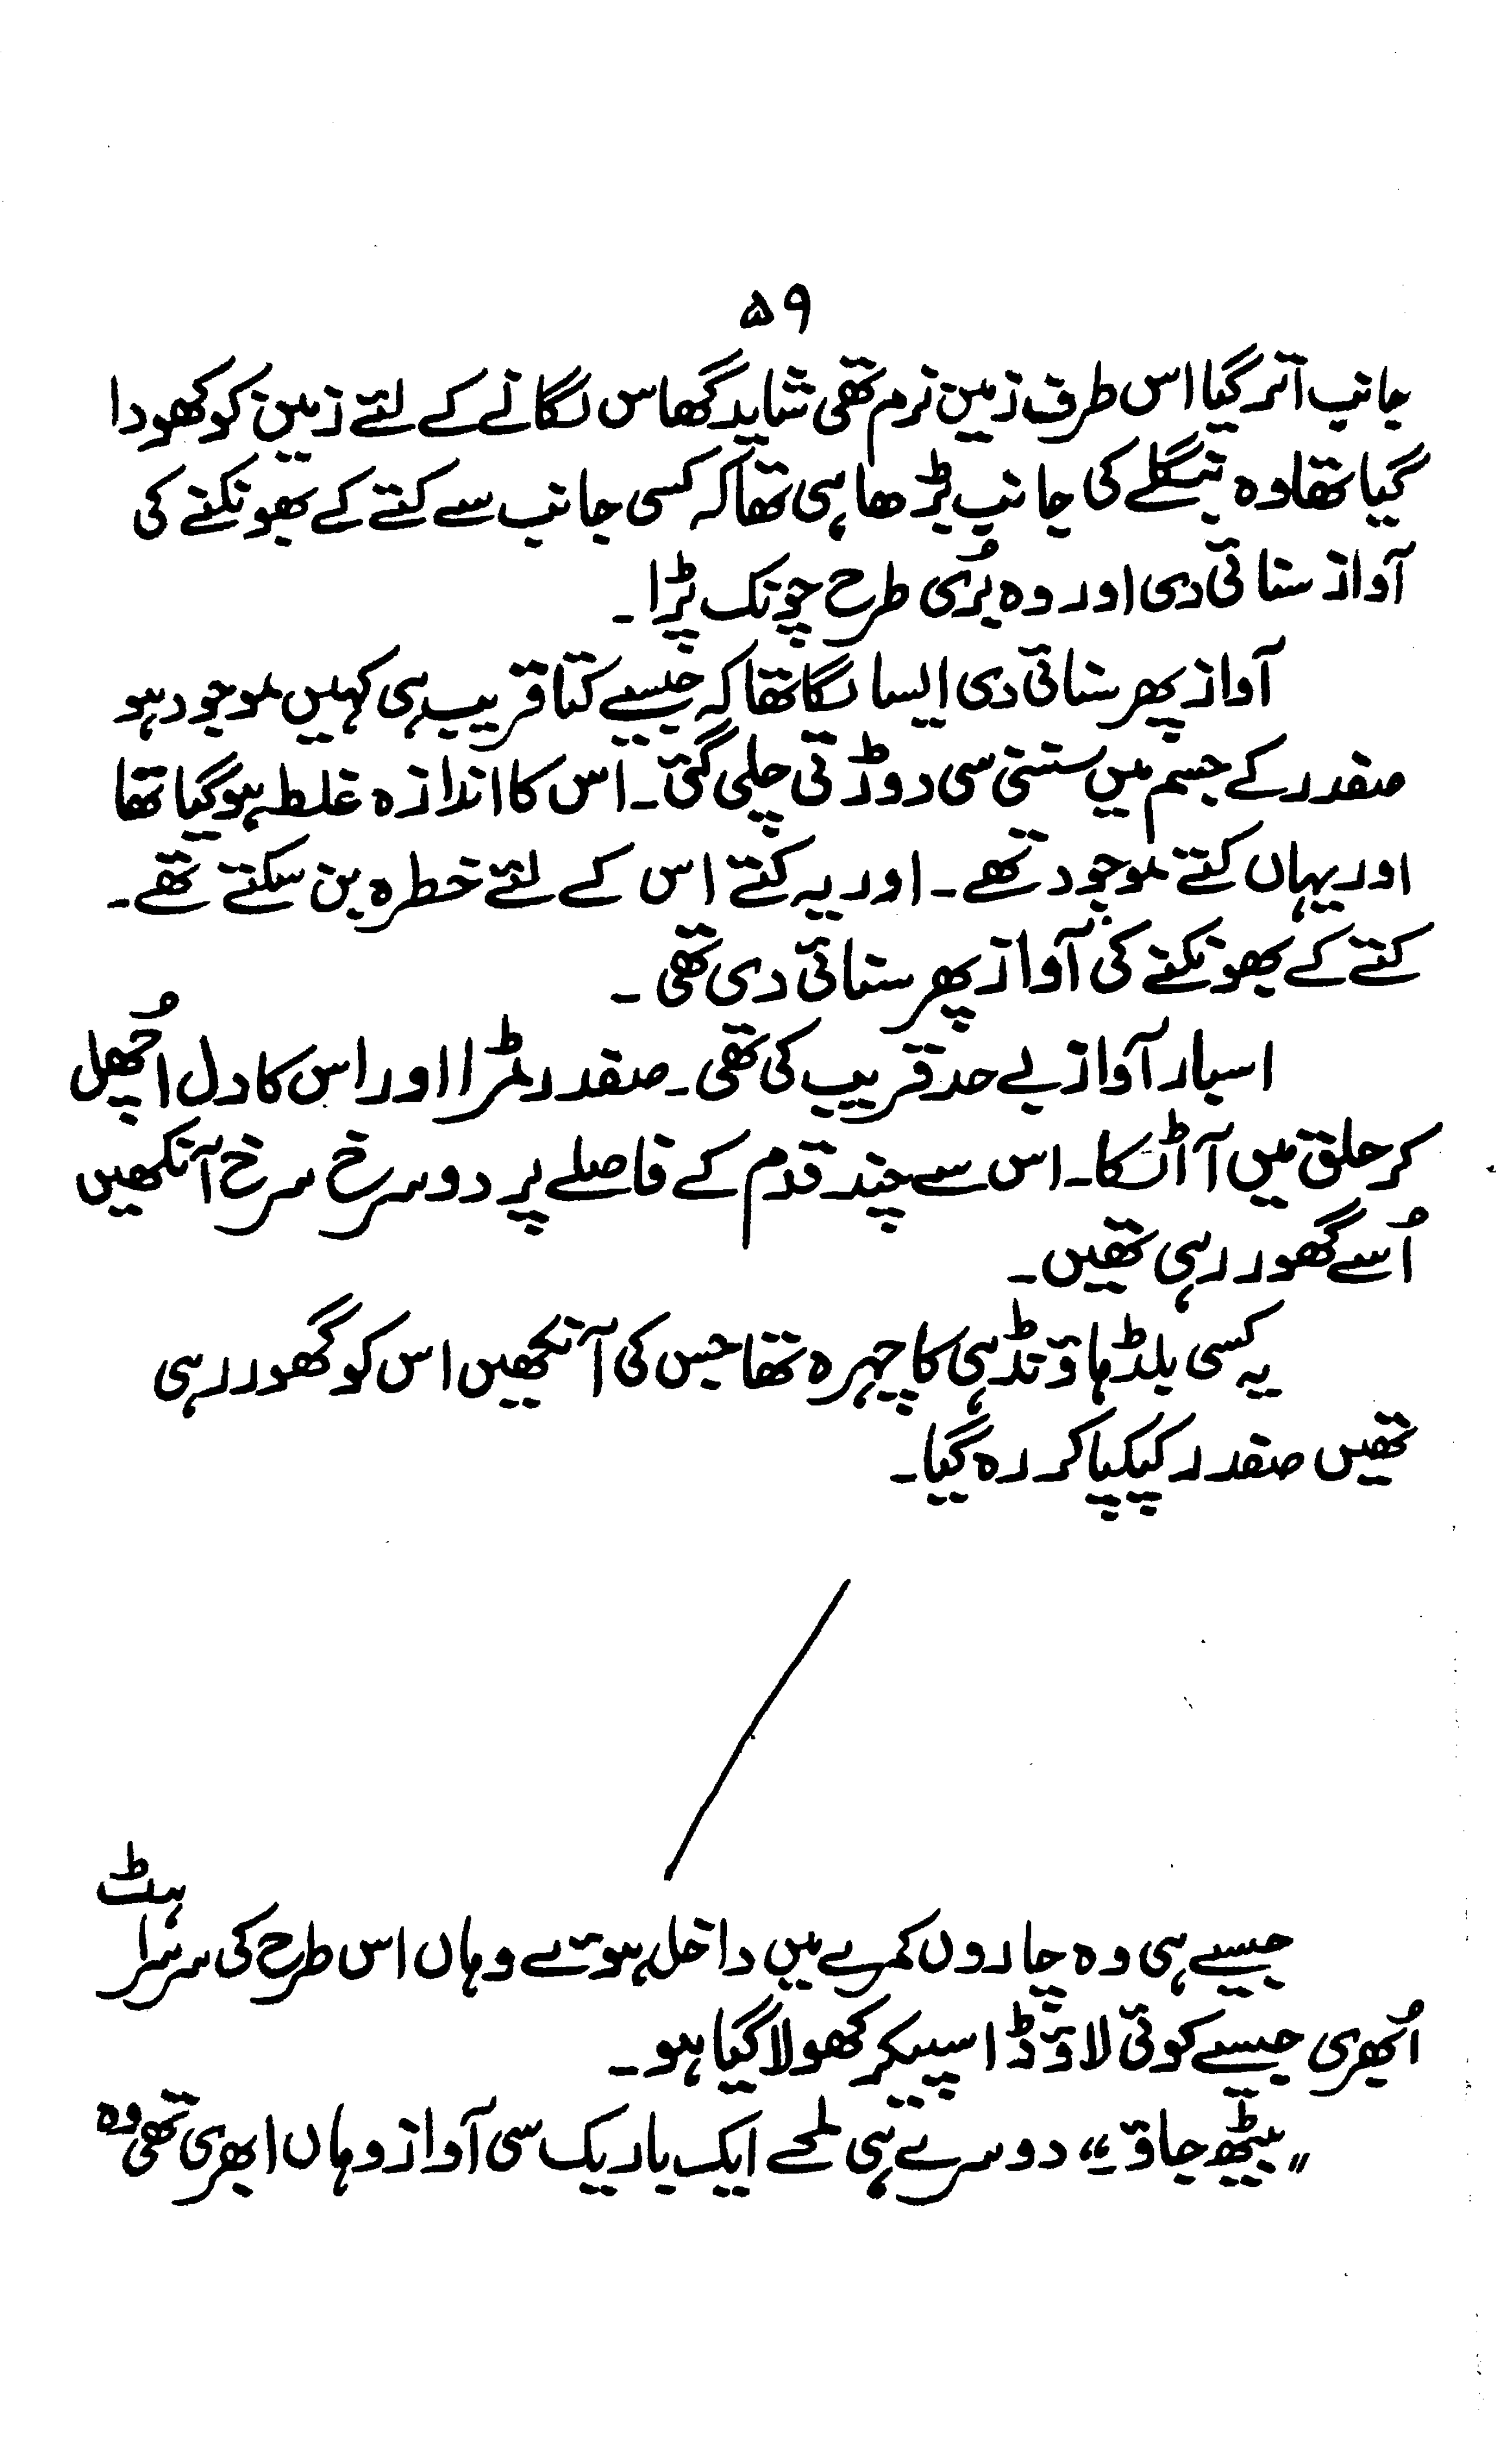 ۵۹
جانب اتر گیا اس طرف زمین نرم تھی شاید گھاس لگانے کے لئے زمین کو کھودا
گیا تھا وہ بنگلے کی جانب بڑھا ہی تھا کہ کسی جانب سے کتے کے بھونکنے کی
آواز سنائی دی اور وہ بُری طرح چونک پڑا۔
آواز پھر سنائی دی ایسا لگا تھا کہ جیسے کتا قریب ہی کہیں موجود ہو
صفدر کے جسم میں سنسنی سی دوڑتی چلی گئی۔ اس کا اندازہ غلط ہو گیا تھا
اور یہاں کتے موجود تھے۔ اور یہ کتے اس کے لئے خطرہ بن سکتے تھے۔
کتے کے بھونکنے کی آواز پھر سنائی دی تھی۔
اسبار آواز بے حد قریب کی تھی۔ صفدر مڑا اور اس کا دل اُچھل
کر حلق میں آ اٹکا۔ اس سے چند قدم کے فاصلے پر دو سرخ سرخ آنکھیں
اُسے گھور رہی تھیں۔
یہ کسی بلڈ ہاؤنڈ ہی کا چہرہ تھا جس کی آنکھیں اس کو گھور رہی
تھیں صفدر کپکپا کر رہ گیا۔
جیسے ہی وہ چاروں کمرے میں داخل ہوئے وہاں اس طرح کی سرسراہٹ
اُبھری جیسے کوئی لاؤڈ اسپیکر کھولا گیا ہو۔
"بیٹھ جاؤ۔" دوسرے ہی لمحے ایک باریک سی آواز وہاں ابھری تھی وہ